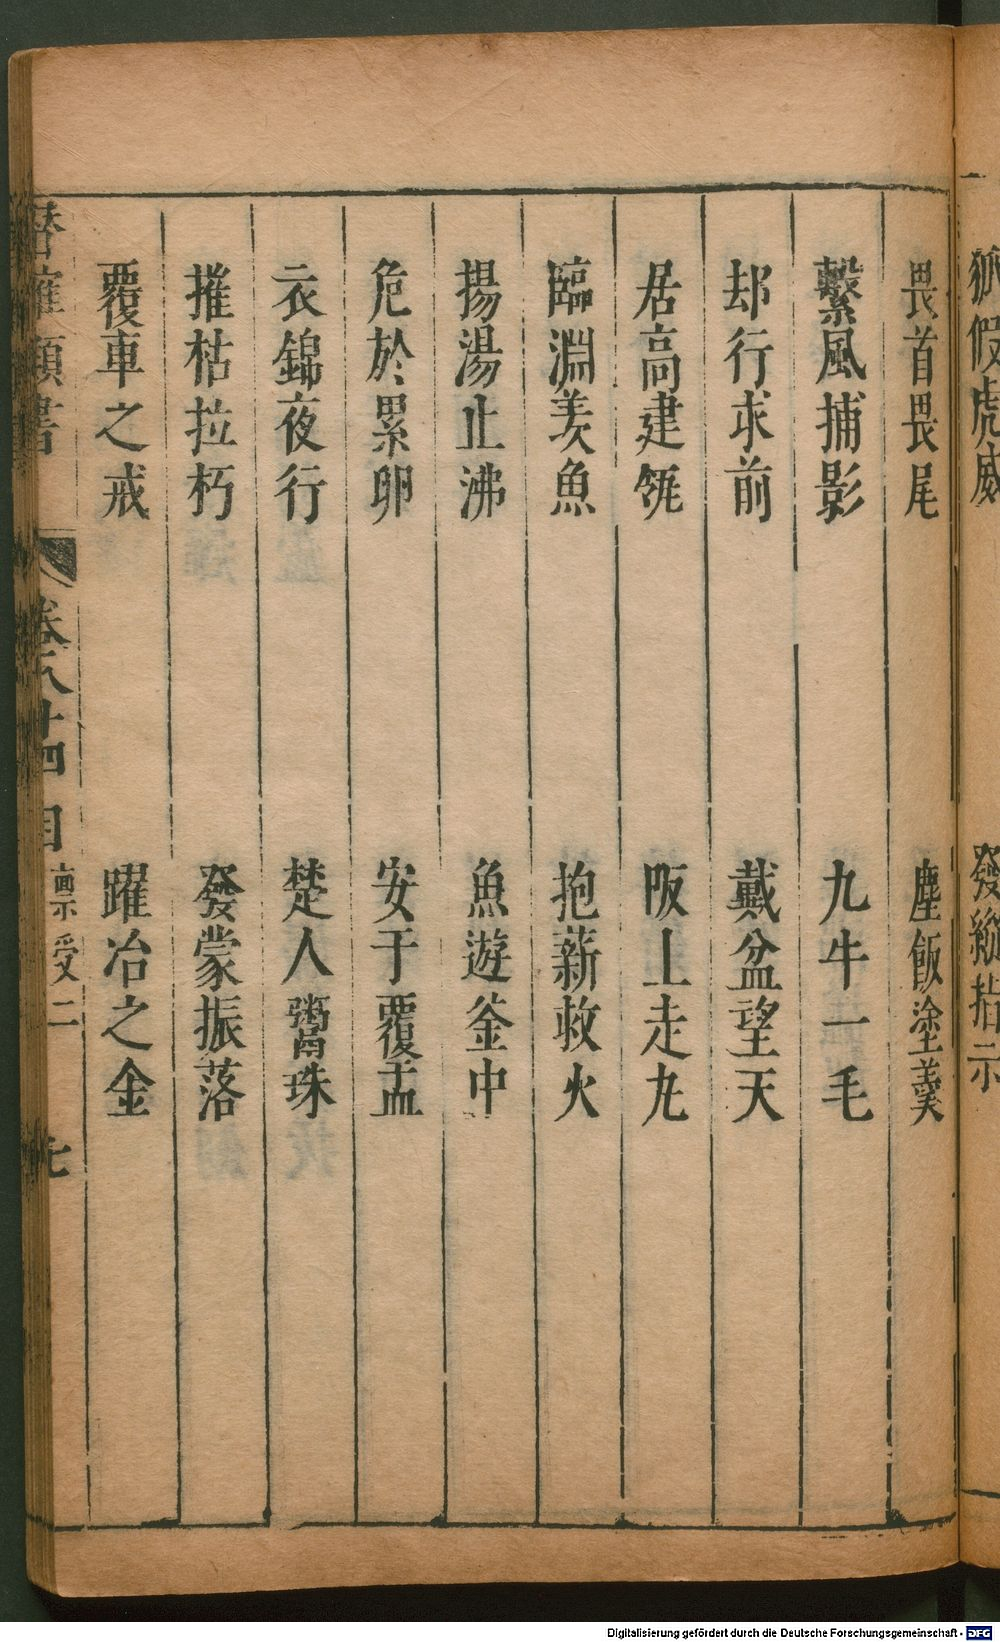 狐假虎威
發縱指示
畏首畏尾
塵飯塗羹
繫風捕影
九牛一毛
却行求前
戴盆望天
居高建瓴
阪上走丸
臨淵羡魚
抱薪救火
揚湯止沸
魚遊釜中
危於累卵
安于覆盂
衣錦夜行
楚人鬻珠
推枯拉朽
發蒙振落
覆車之戒
躍冶之金
類書
卷八十四 目
稟受二
七
Digitalisierung gefördert durch die Deutsche Forschungsgemeinschaft - DFG